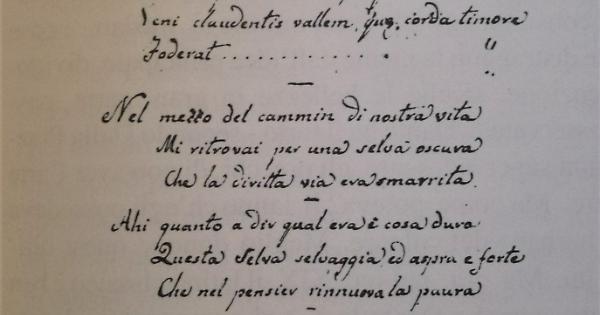 Veni claudentis vallem, quæ corda timore
Foderat . . . . . . . . . . . . . "
"
Nel mezzo del cammin di nostra vita
Mi ritrovai per una selva oscura
Che la diritta via era smarrita.
Ahi quanto a dir qual era è cosa dura
Questa selva selvaggia ed aspra e forte
Che nel pensier rinnuova la paura